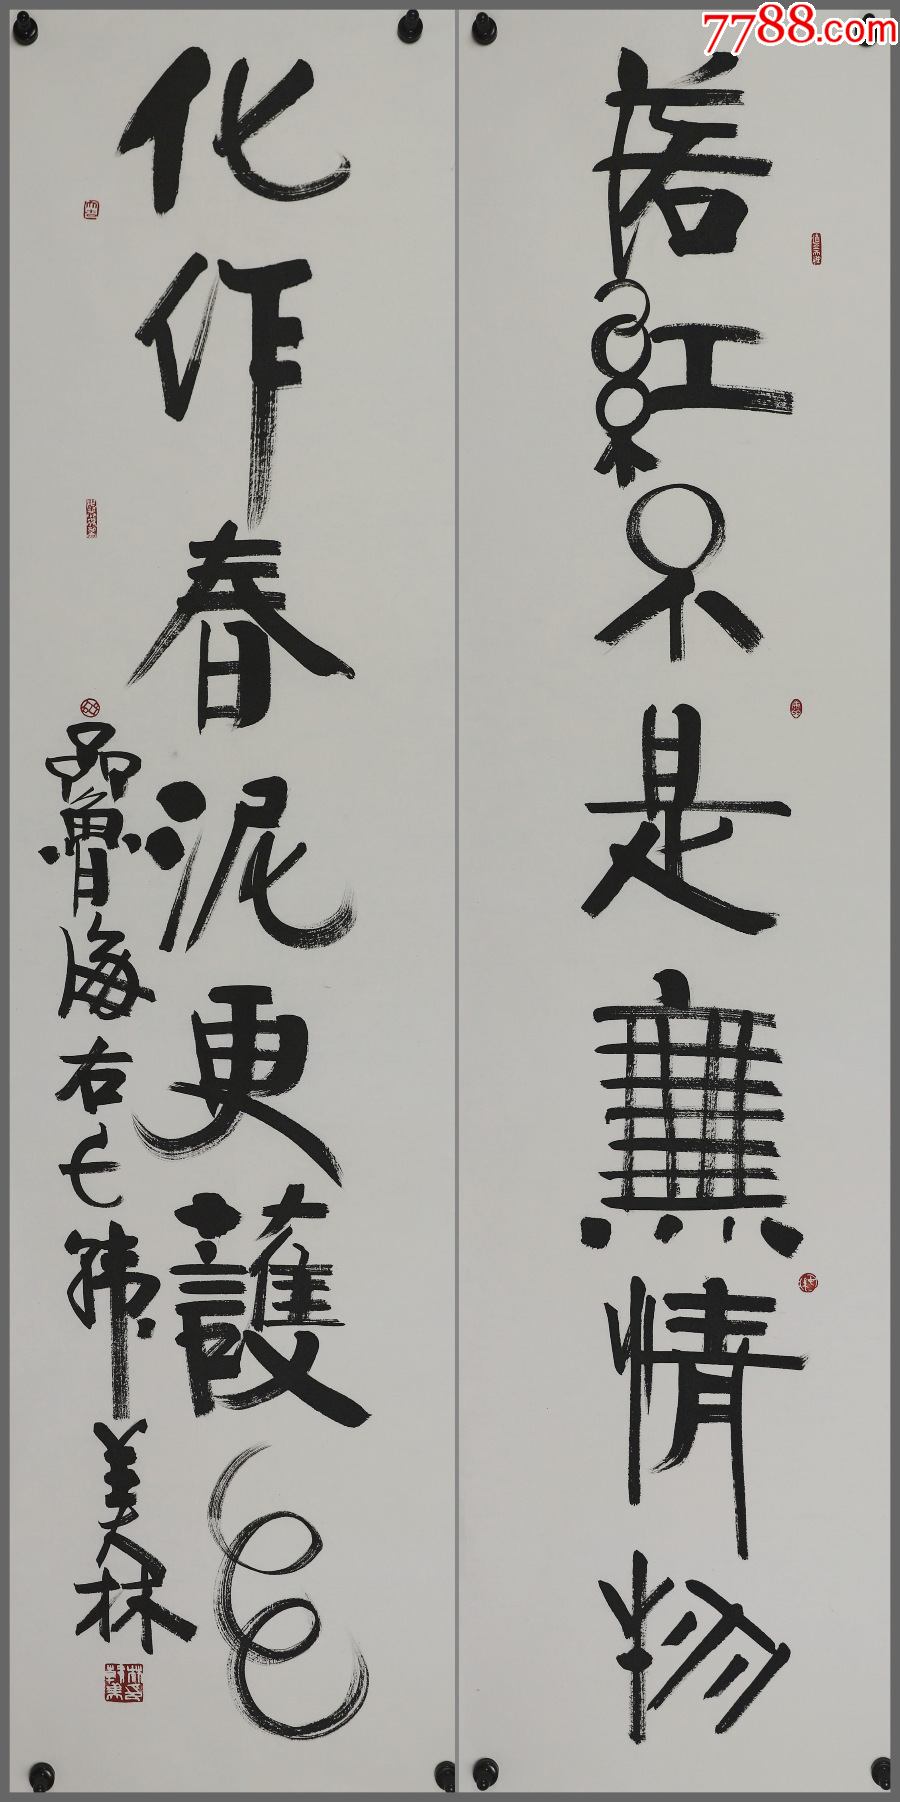 7788.com
落紅不是無情物
化作春泥更護花
品魯海右七韩美林